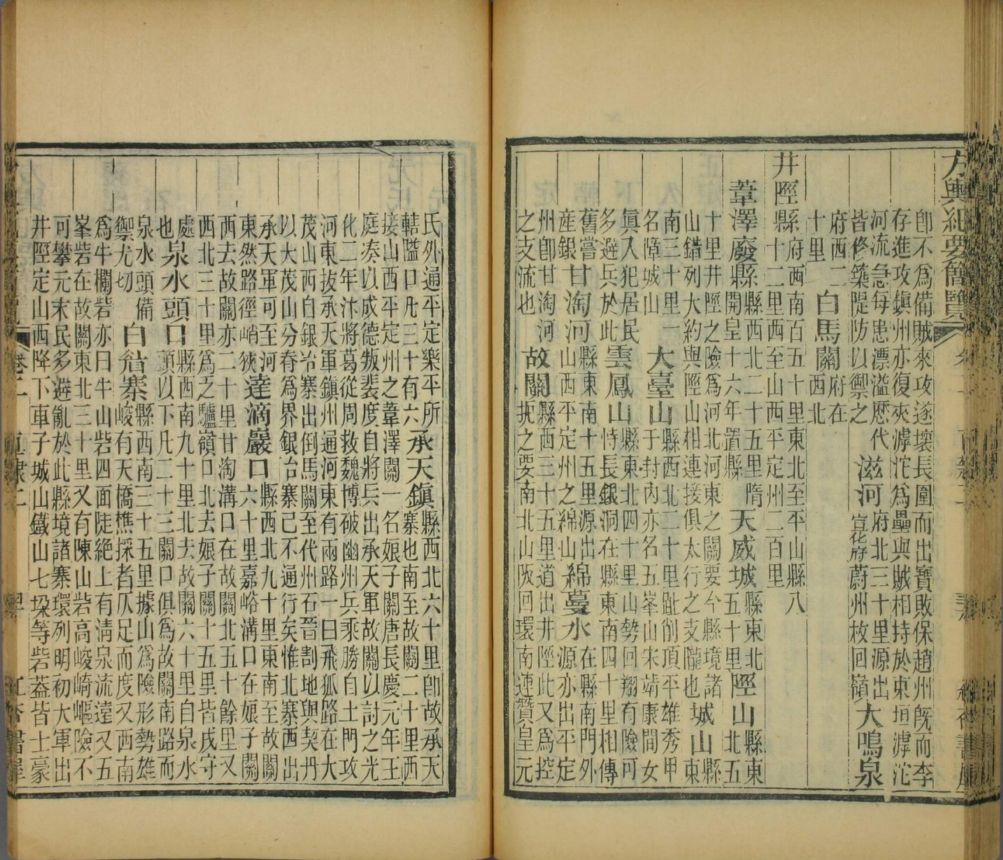 方輿紀要簡覽
卽不爲備賊來攻遂壞長圍而出寶敗保趙州旣而李
存進攻鎭州亦復夾滹沱爲壘與賊相持於東垣滹沱
河流急每患漂溢歷代
皆修築隄防以禦之
滋河府北三十里源出
蔚州枚回嶺
大鳴泉
府西二
十里
白馬關府在
西北
井陘縣府西南百五十里東北至平山縣八
十里西至山西平定州二百里
葦澤廢縣縣西北二十五里隋
開皇十六年置縣
天威城縣東北
五十里
陘山縣北五
縣東
十里井陘之險爲河北河東之關要今縣境諸
山錯列大約與陘山相連接俱太行之支隴也
城山縣東
南三十里一
名障城山
大臺山縣西北二十里趾削頂平雄秀甲
于封內亦名五峯山宋靖康間女
眞入犯居民
多避兵於此
雲鳳山縣東北四十里山勢回翔有險可
恃長銀洞在縣東南四十里相傳
舊嘗
產銀
甘淘河縣東南十五里源出
山西平定州之綿山
綿蔓水在縣南門外
源亦出平定
州卽甘淘河
之支流也
故關縣西三十五里道出井陘此又爲控
扼之要南北山阪回環南連贊皇元
氏外通平定樂平所
轄隘口凡三十有六
承天鎭縣西北六十里卽故承天
寨也南至故關二十里西
接山西平定州之葦澤關一名娘子關唐長慶元年王
庭奏以成德叛裴度自將兵出承天軍故關以討之光
化二年汴將葛從周救魏博破幽州兵乘勝自土門攻
河東拔承天軍鎭州通河東有兩路一曰飛狐路在大
茂山西自銀冶寨出倒馬關至代州石晉割地與契丹
以大茂山分脊爲界銀冶寨已不通行矣惟北寨西出
承天軍可至河
東然路徑峭狹
達滴巖口縣西北九十里東南至故關
六十里嘉峪溝口在娘子關
西去故關亦二十里甘淘溝口在故關北五十餘里又
西北三十里爲之驢嶺口北去娘子關十五里皆戍守
處
泉水頭口縣西南九十里北去故關六十里自泉水
頭以下凡二十三關口俱爲故關南路而
泉水頭備
禦尤切
縣西南三十五里據山爲險形勢雄
峻有天橋樵採者仄足而度又西南
爲牛欄砦亦曰牛山砦四面陡絶上有清泉流遶又五
峯砦在故關東北三十里又有陳山砦高峻崎嶇險不
可攀元末民多避亂於此縣境諸寨環列明初大軍出
井陘定山西降下車子城山鐵山七垜等砦葢皆土豪